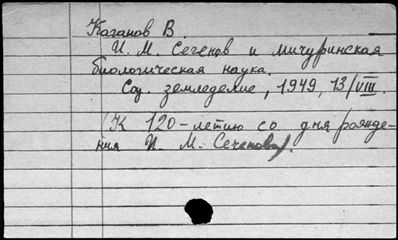 Каганов В.
И. М. Сеченов и мичуринская
биологическая наука.
Соц. земледелие, 1949, 13/VIII.
(К 120-летию со дня рожде-
ния И. М. Сеченова).